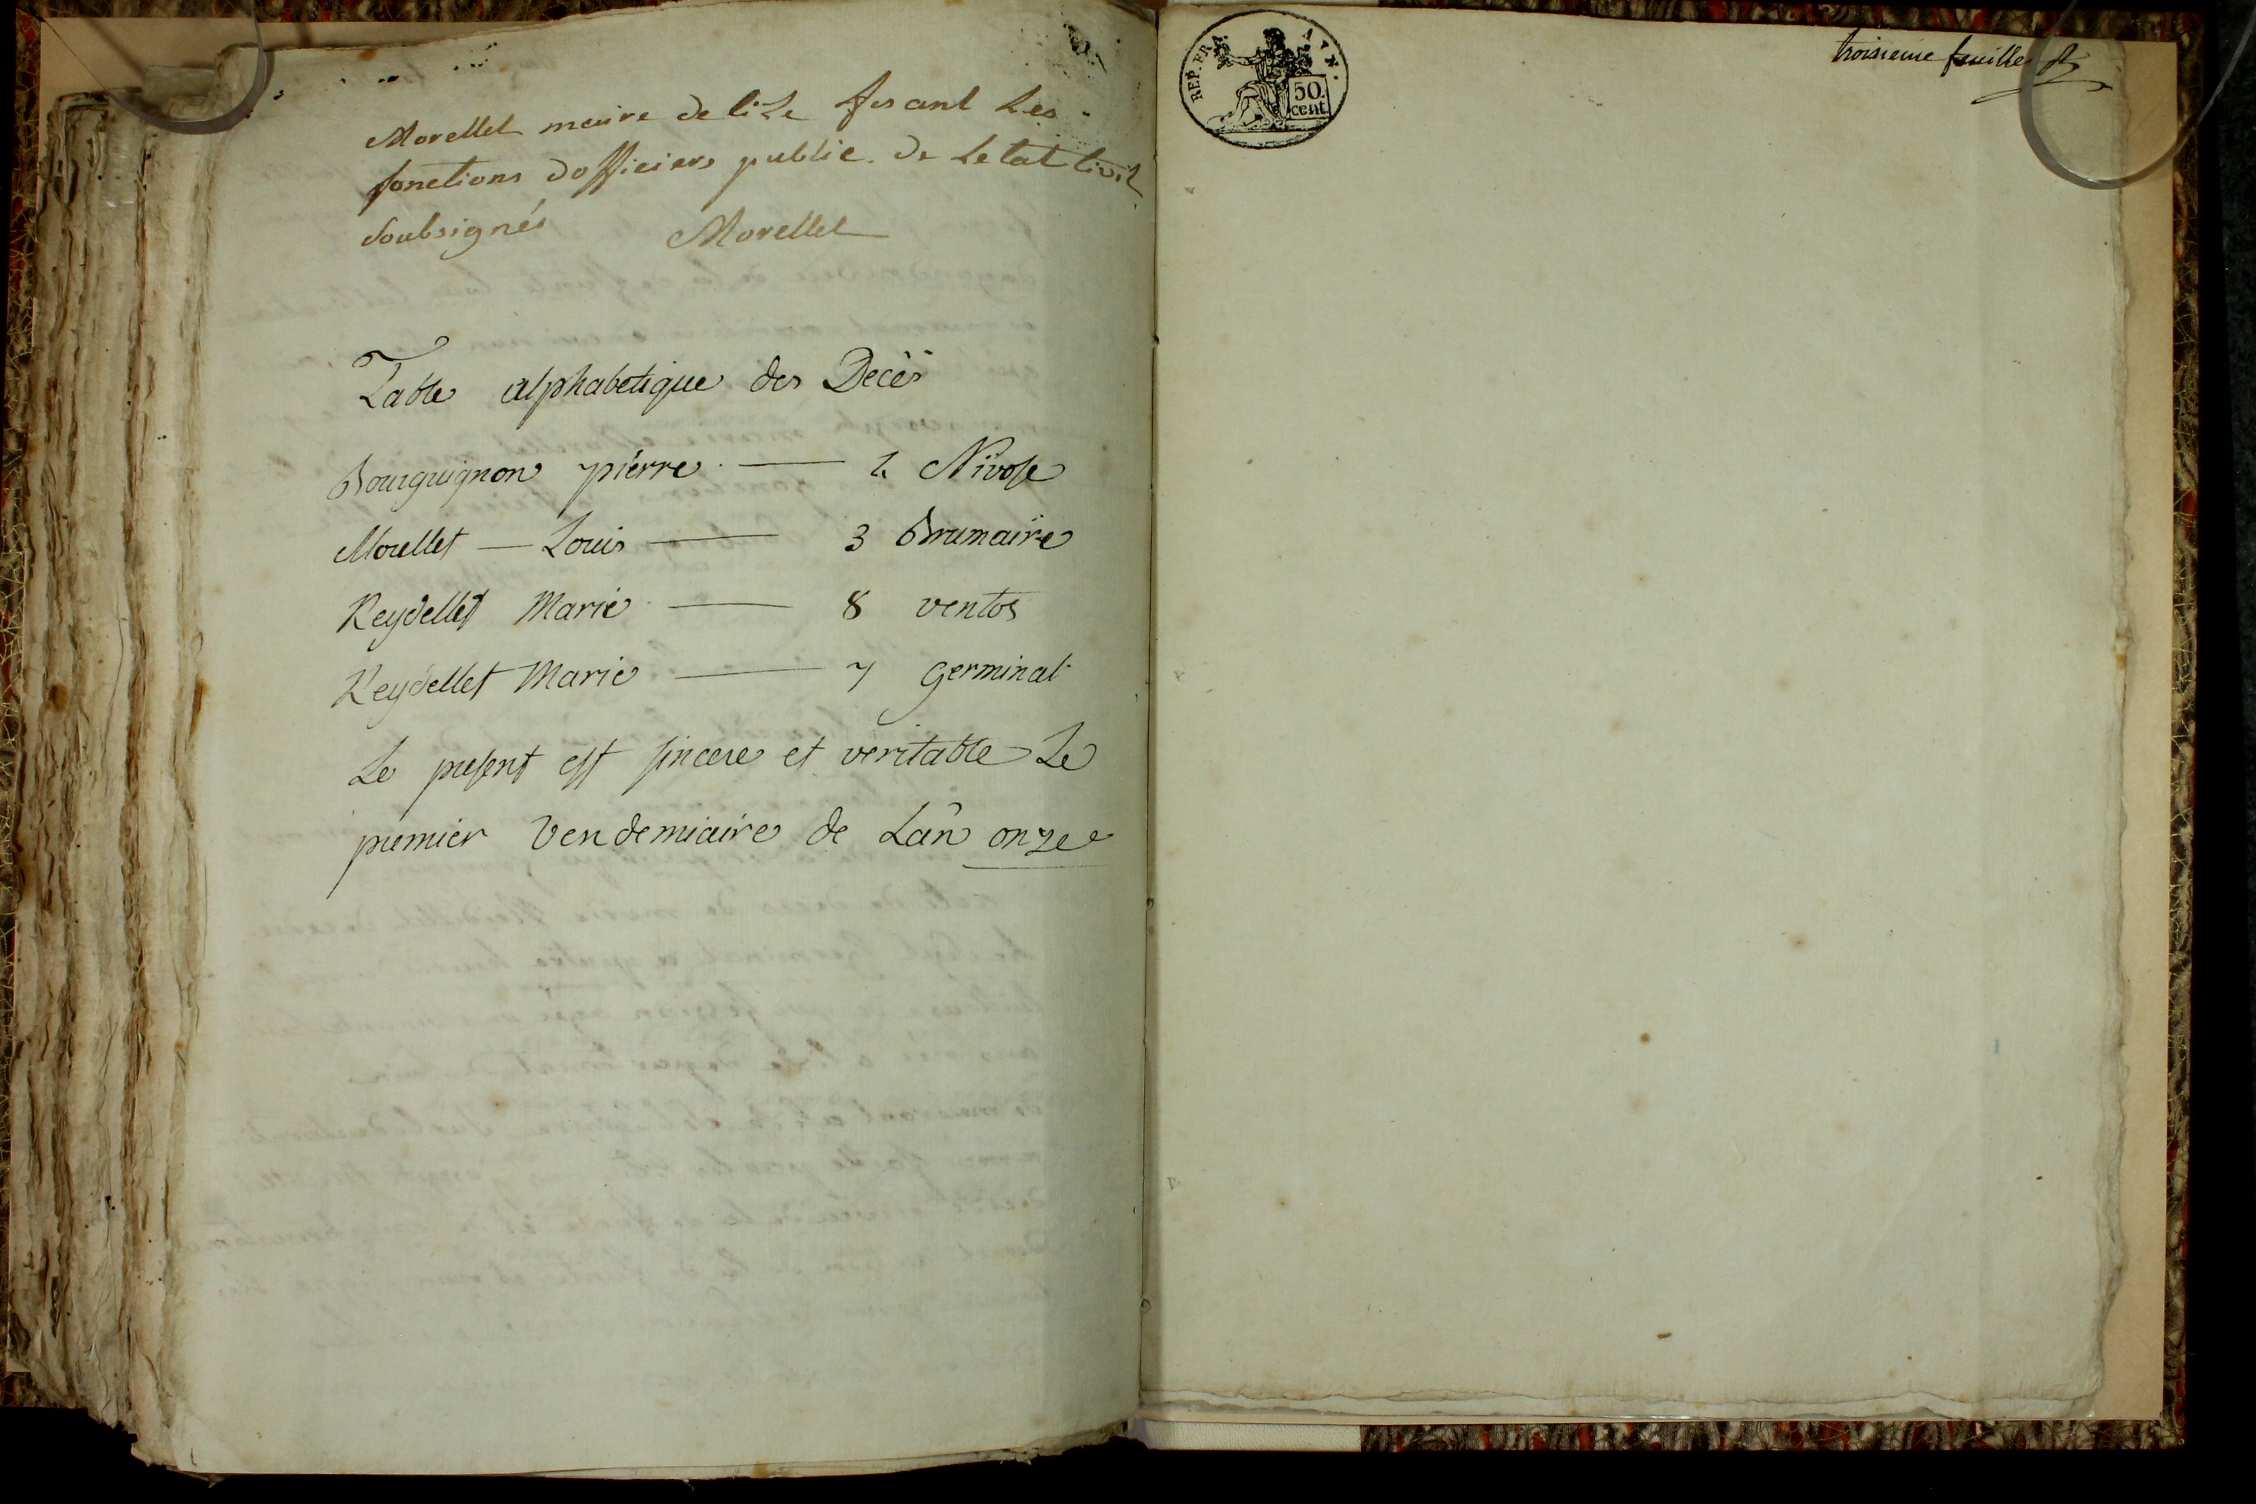 Morellet maire de lize fesant Les
fonctions dofficiers public de Letat Civil
Soubsignés Morellet
Table alphabetique des Decès
Bourguignon pierre — 2 Nivose
Morellet — Louis — 3 Brumaire
Reydellet Marie — 8 ventos
Reydellet Marie — 7 Germinal
Le present est sincere et veritable Le
premier Vendemiaire de Lan onze
REP. FRA.
50.
cent
troisieme feuille